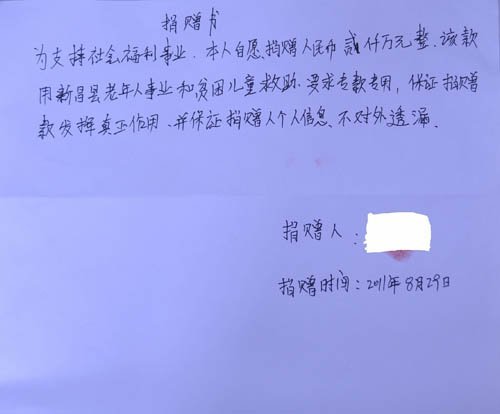 捐赠书
为支持社会福利事业.本人自愿捐赠人民币贰仟万元整.该款
用新昌县老年人事业和贫困儿童救助.要求专款专用,保证捐赠
款发挥真正作用.并保证捐赠人个人信息.不对外透漏.
捐赠人:
捐赠时间:2011年8月29日